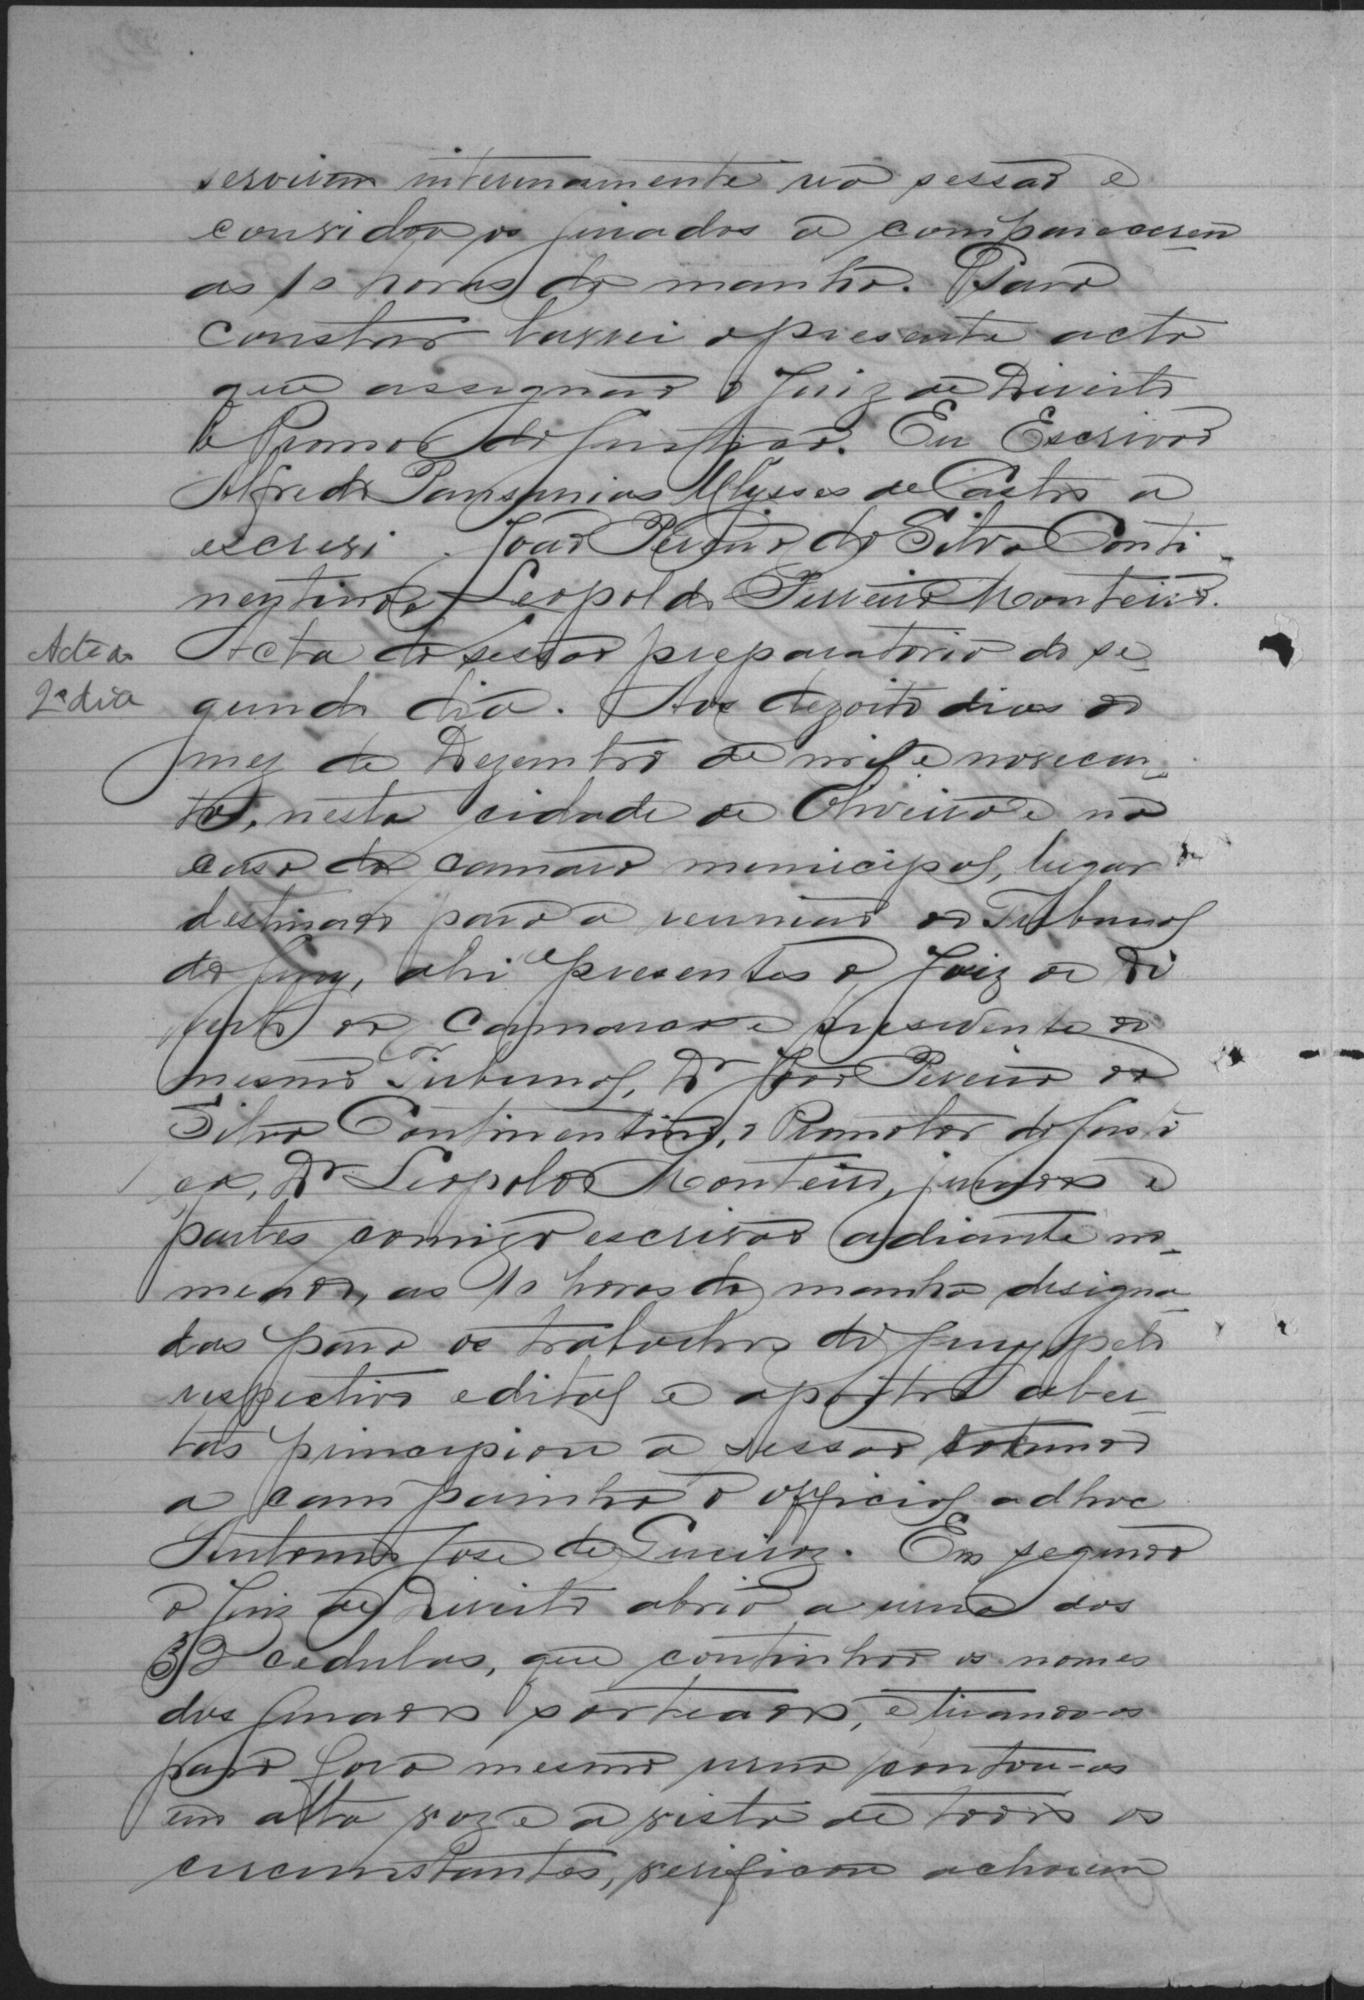 servirem interinamente na sessão e
convidão os jurados a comparecerem
as 10 horas da manhã. Para
constar lavrei a presente acta
que assignão o Juiz de Direito
e Promotor da Justiça. Eu Escrivão
Alfredo Pausanias Ulysses de Castro a
escrevi. João Pereira da Silva Conti-
nentino, Leopoldo Ferreira Monteiro.
Acta do
2ª dia
Acta da sessão preparatoria do se-
gundo dia. Aos dezoito dias do
mez de Dezembro de mil e novecen-
tos, nesta cidade de Oliveira e na
casa da camara municipal, lugar
destinado para a reunião do Tribunal
do Jury, ahi presentes o Juiz de Di
reito da Comarca e presidente do
mesmo Tribunal, Dr João Pereira da
Silva Continentino, o Promotor da Justi
ça, Dr Leopoldo Monteiro, jurados e
partes comigo escrivão adiante no-
meado, as 10 horas da manhã designa-
das para os trabalhos do Jury pelo
respectivo edital e a portas aber-
tas principiou a sessão tocando
a campainha o official adhoc
Antonio José de Queiroz. Em seguida
o Juiz de Direito abrio a urna das
32 cedulas, que continhão os nomes
dos jurados sorteados, e tirando-os
para fora mesma urna contou-as
em alta voz e a vista de todos os
circumstantes, verificou acharem